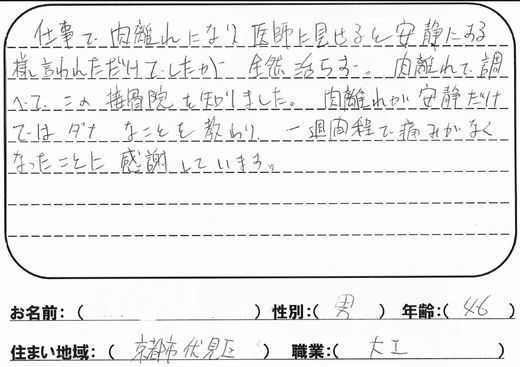 仕事で肉離れになり医師に見せると安静にする
様に言われただけでしたが 全然治らず。肉離れで調
べて、この接骨院を知りました。肉離れが安静だけ
ではダメなことを教わり、一週間程で痛みがなく
なったことに感謝しています。
お名前:( ) 性別:( 男 ) 年齢:( 46 )
住まい地域:( 京都市伏見区 ) 職業:( 大工 )